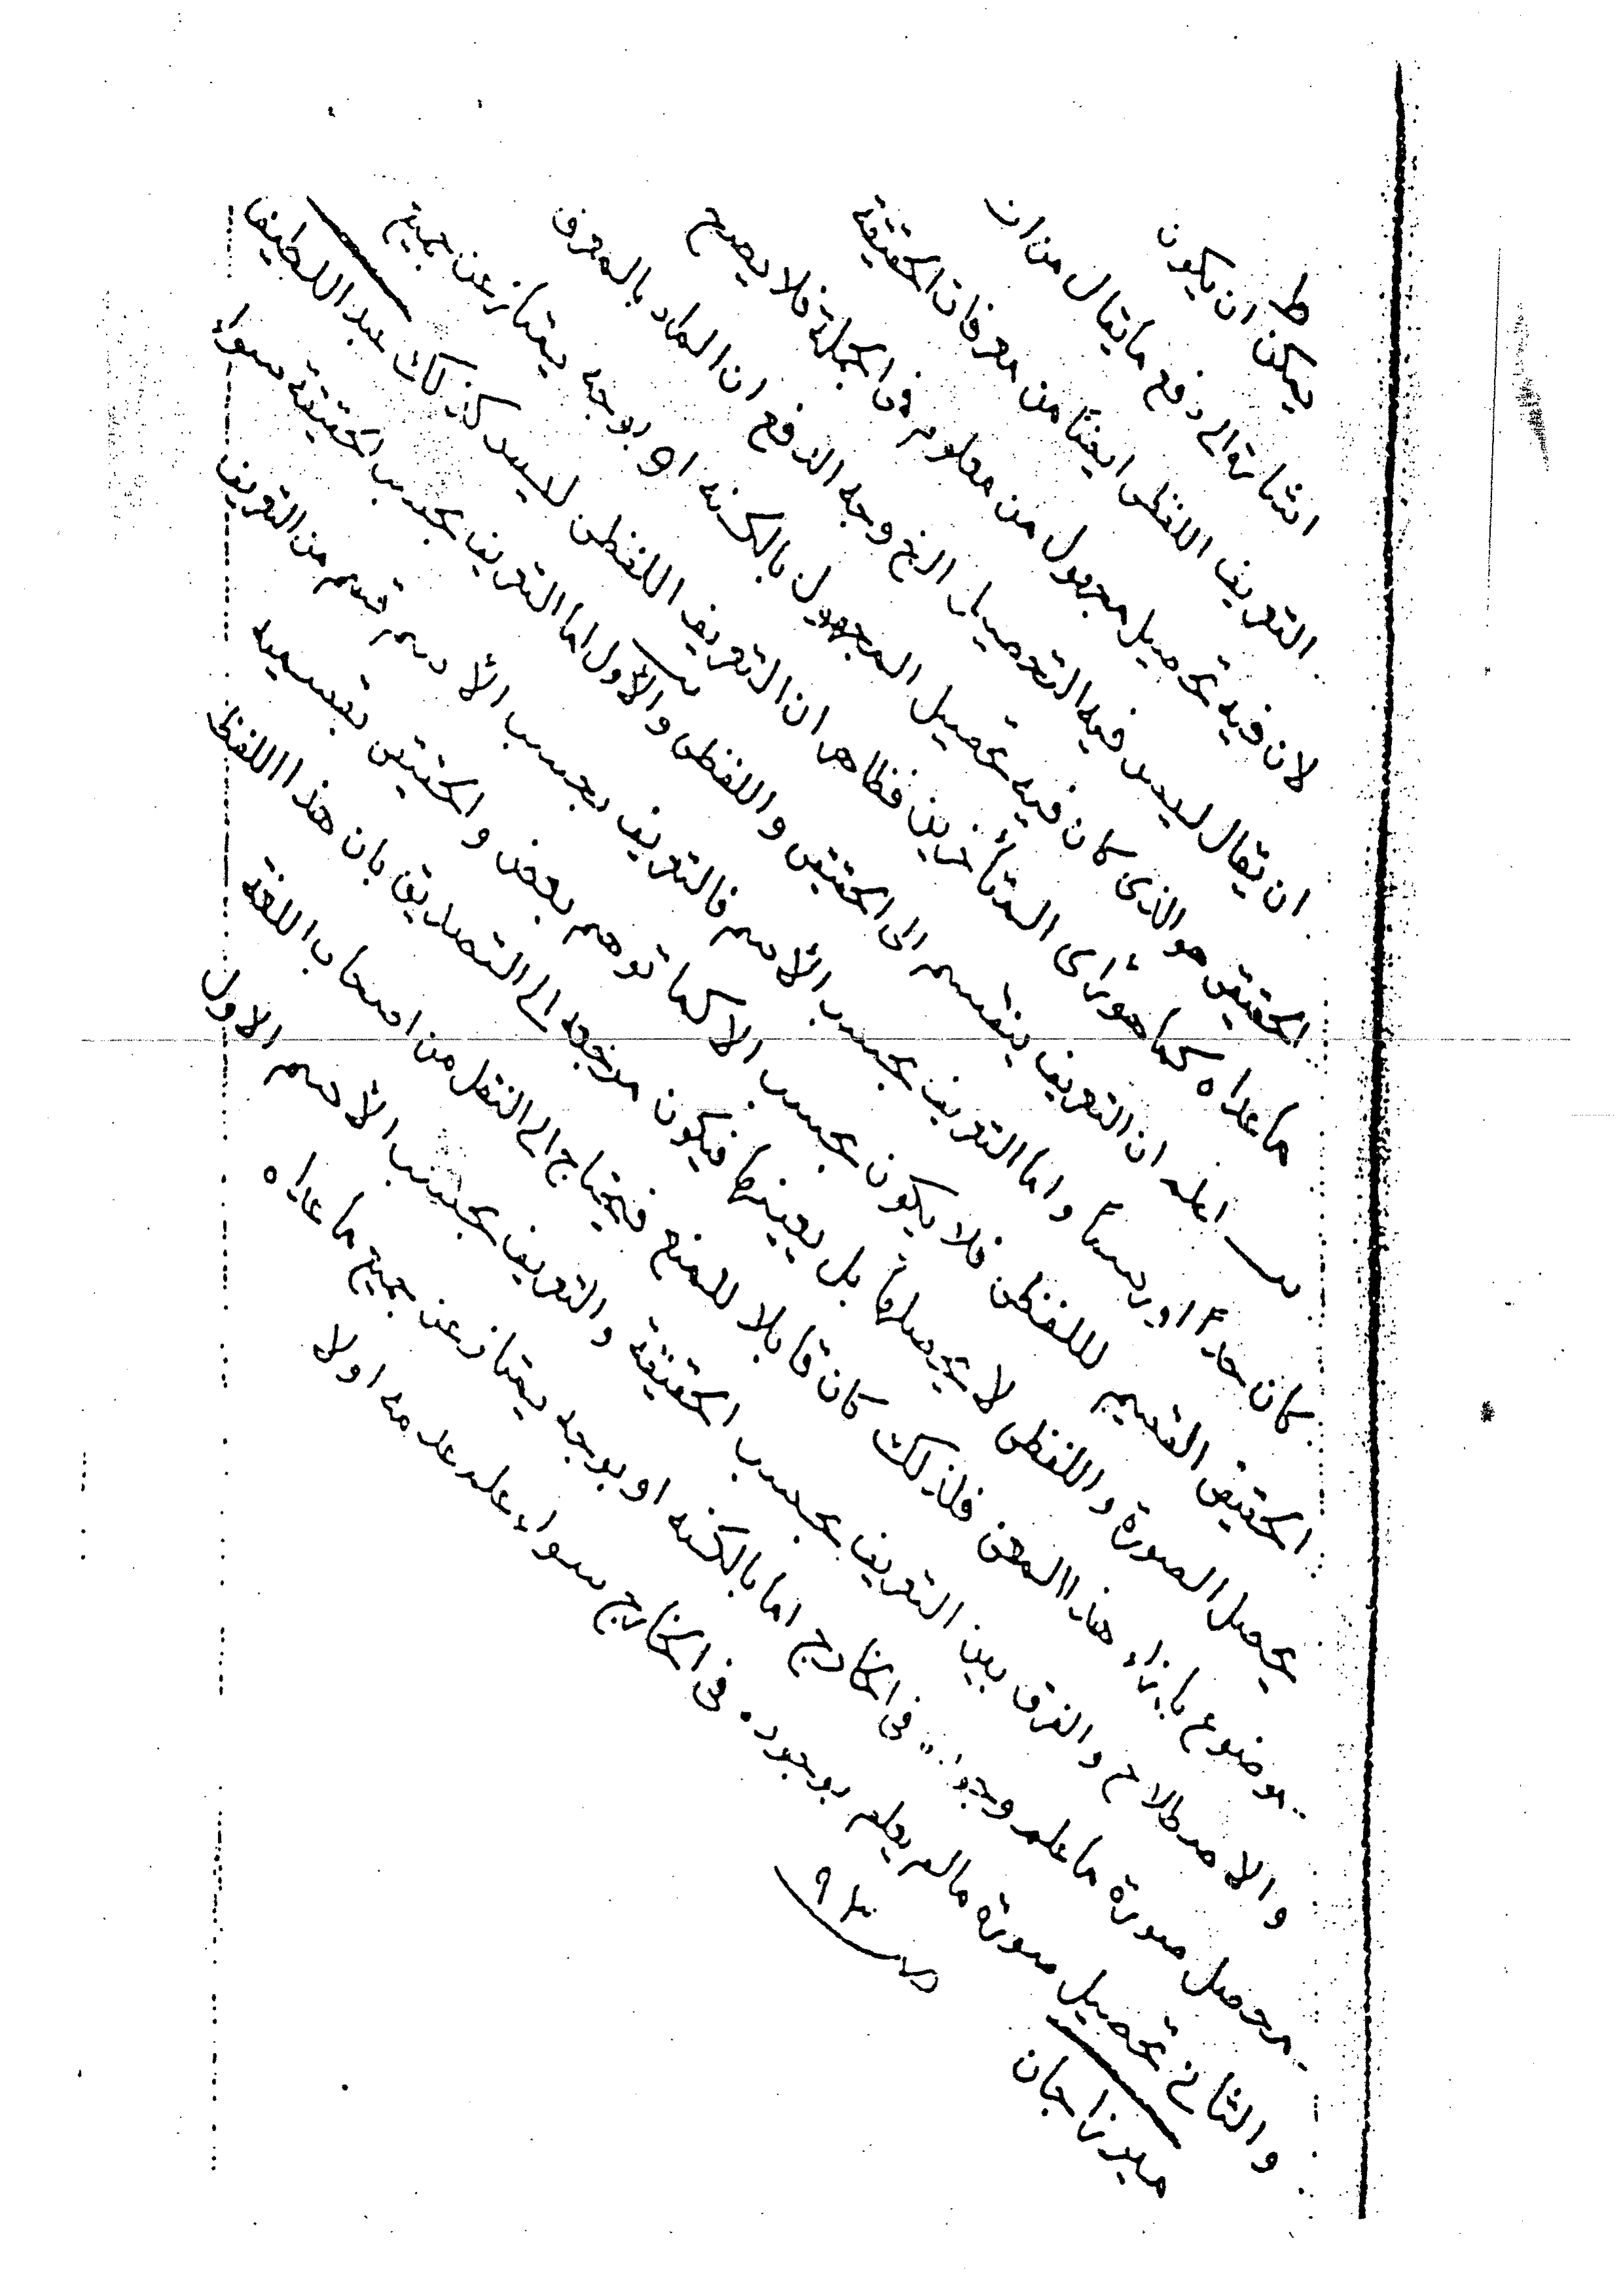 ط
يمكن ان يكون
اشارة الى دفع ما يقال من ان
التعريف اللفظى ايضا من معرفات الحقيقة
لان فيه تحصيل مجهول من معلوم فى الجملة فلا يصح
ان يقال ليس فيه التحصيل الخ وجه الدفع ان المراد بالمعرف
الحقيقى هو الذى كان فيه تحصيل المجهول بالكنه او بوجه يمتاز عن جميع
ما عداه كما هو رأى المتأخرين فظاهر ان التعريف اللفظى ليس كذلك عبد اللطيف
اعلم ان التعريف ينقسم الى الحقيقى واللفظى والأول اما التعريف بحسب الحقيقة سواء
كان حداً او رسماً واما التعريف بحسب الأسم فالتعريف بحسب الأسم قسم من التعريف
الحقيقى القسيم للفظى فلا يكون بحسب الا كما توهم بعض والحقيقى بقسميه
يحصل الصورة واللفظى لا يحصلها بل يعينها فيكون مرجعه الى التصديق بان هذا اللفظ
موضوع بازاء هذا المعنى فلذلك كان قابلا للمنع فيحتاج الى النقل من اصحاب اللغة
والاصطلاح والفرق بين التعريف بحسب الحقيقة والتعريف بحسب الأسم الاول
تحصيل صورة ما علم وجوده فى الخارج اما بالكنه او بوجه يمتاز عن جميع ما عداه
والثانى تحصيل صورة مالم يعلم بوجوده فى الخارج سواء علم عدمه اولا
ميرزاجان